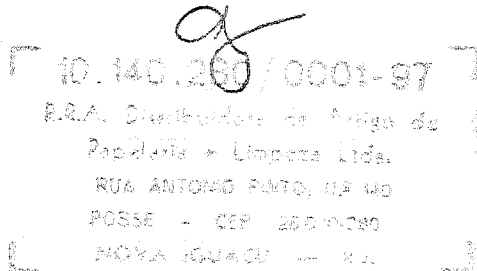 10.140.260/0001-97
R.R.A. Distribuidora de Artigo de
Papelaria e Limpeza Ltda.
RUA ANTONIO PINTO,
POSSE - CEP
NOVA IGUAÇU - RJ.